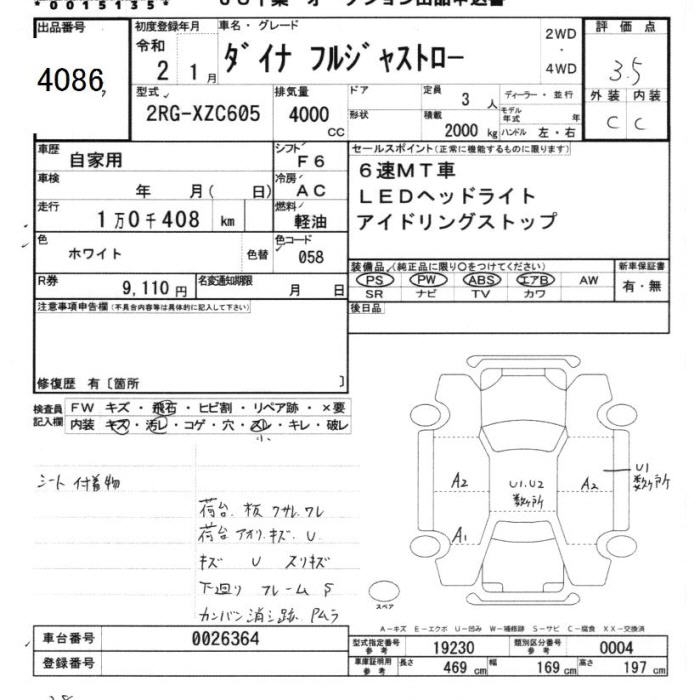 *0015135*
オークション出品申込書
出品番号
4086
初度登録年月
令和
2 1月
車名・グレード
ダイナ フルジャストロー
2WD
・
4WD
評価点
3.5
外装 内装
C C
型式
2RG-XZC605
排気量
4000
CC
ドア
形状
定員
3 人
積載
2000 kg
ディーラー・並行
モデル年式 年
ハンドル 左・右
車歴
自家用
シフト
F6
車検
年 月( 日)
冷房
AC
走行
1万0千408 km
燃料
軽油
色
ホワイト
色替
色コード
058
R券
9,110円
名変通知期限
月 日
セールスポイント(正常に機能するものに限ります)
6速MT車
LEDヘッドライト
アイドリングストップ
装備品(純正品に限り○をつけてください)
PS PW ABS エアB AW
SR ナビ TV カワ
新車保証書
有・無
後日品
注意事項申告欄(不具合内容等は具体的に記入して下さい)
修復歴 有〔箇所 〕
検査員記入欄
FW キズ・飛石・ヒビ割・リペア跡・×要
内装 キズ・汚レ・コゲ・穴・スレ・キレ・破レ
小
シート 付着物
荷台 板 クサレ ワレ
荷台 アオリ キズ U
キズ U スリキズ
下廻り フレーム S
カンバン消シ跡 Pムラ
A2
A1
U1.U2
数ヶ所
A2
U1
数ヶ所
スペア
A-キズ E-エクボ U-凹み W-補修跡 S-サビ C-腐食 XX-交換済
車台番号
0026364
登録番号
型式指定番号
参考
19230
類別区分番号
参考
0004
車庫証明用
参考
長さ
469 cm
幅
169 cm
高さ
197 cm